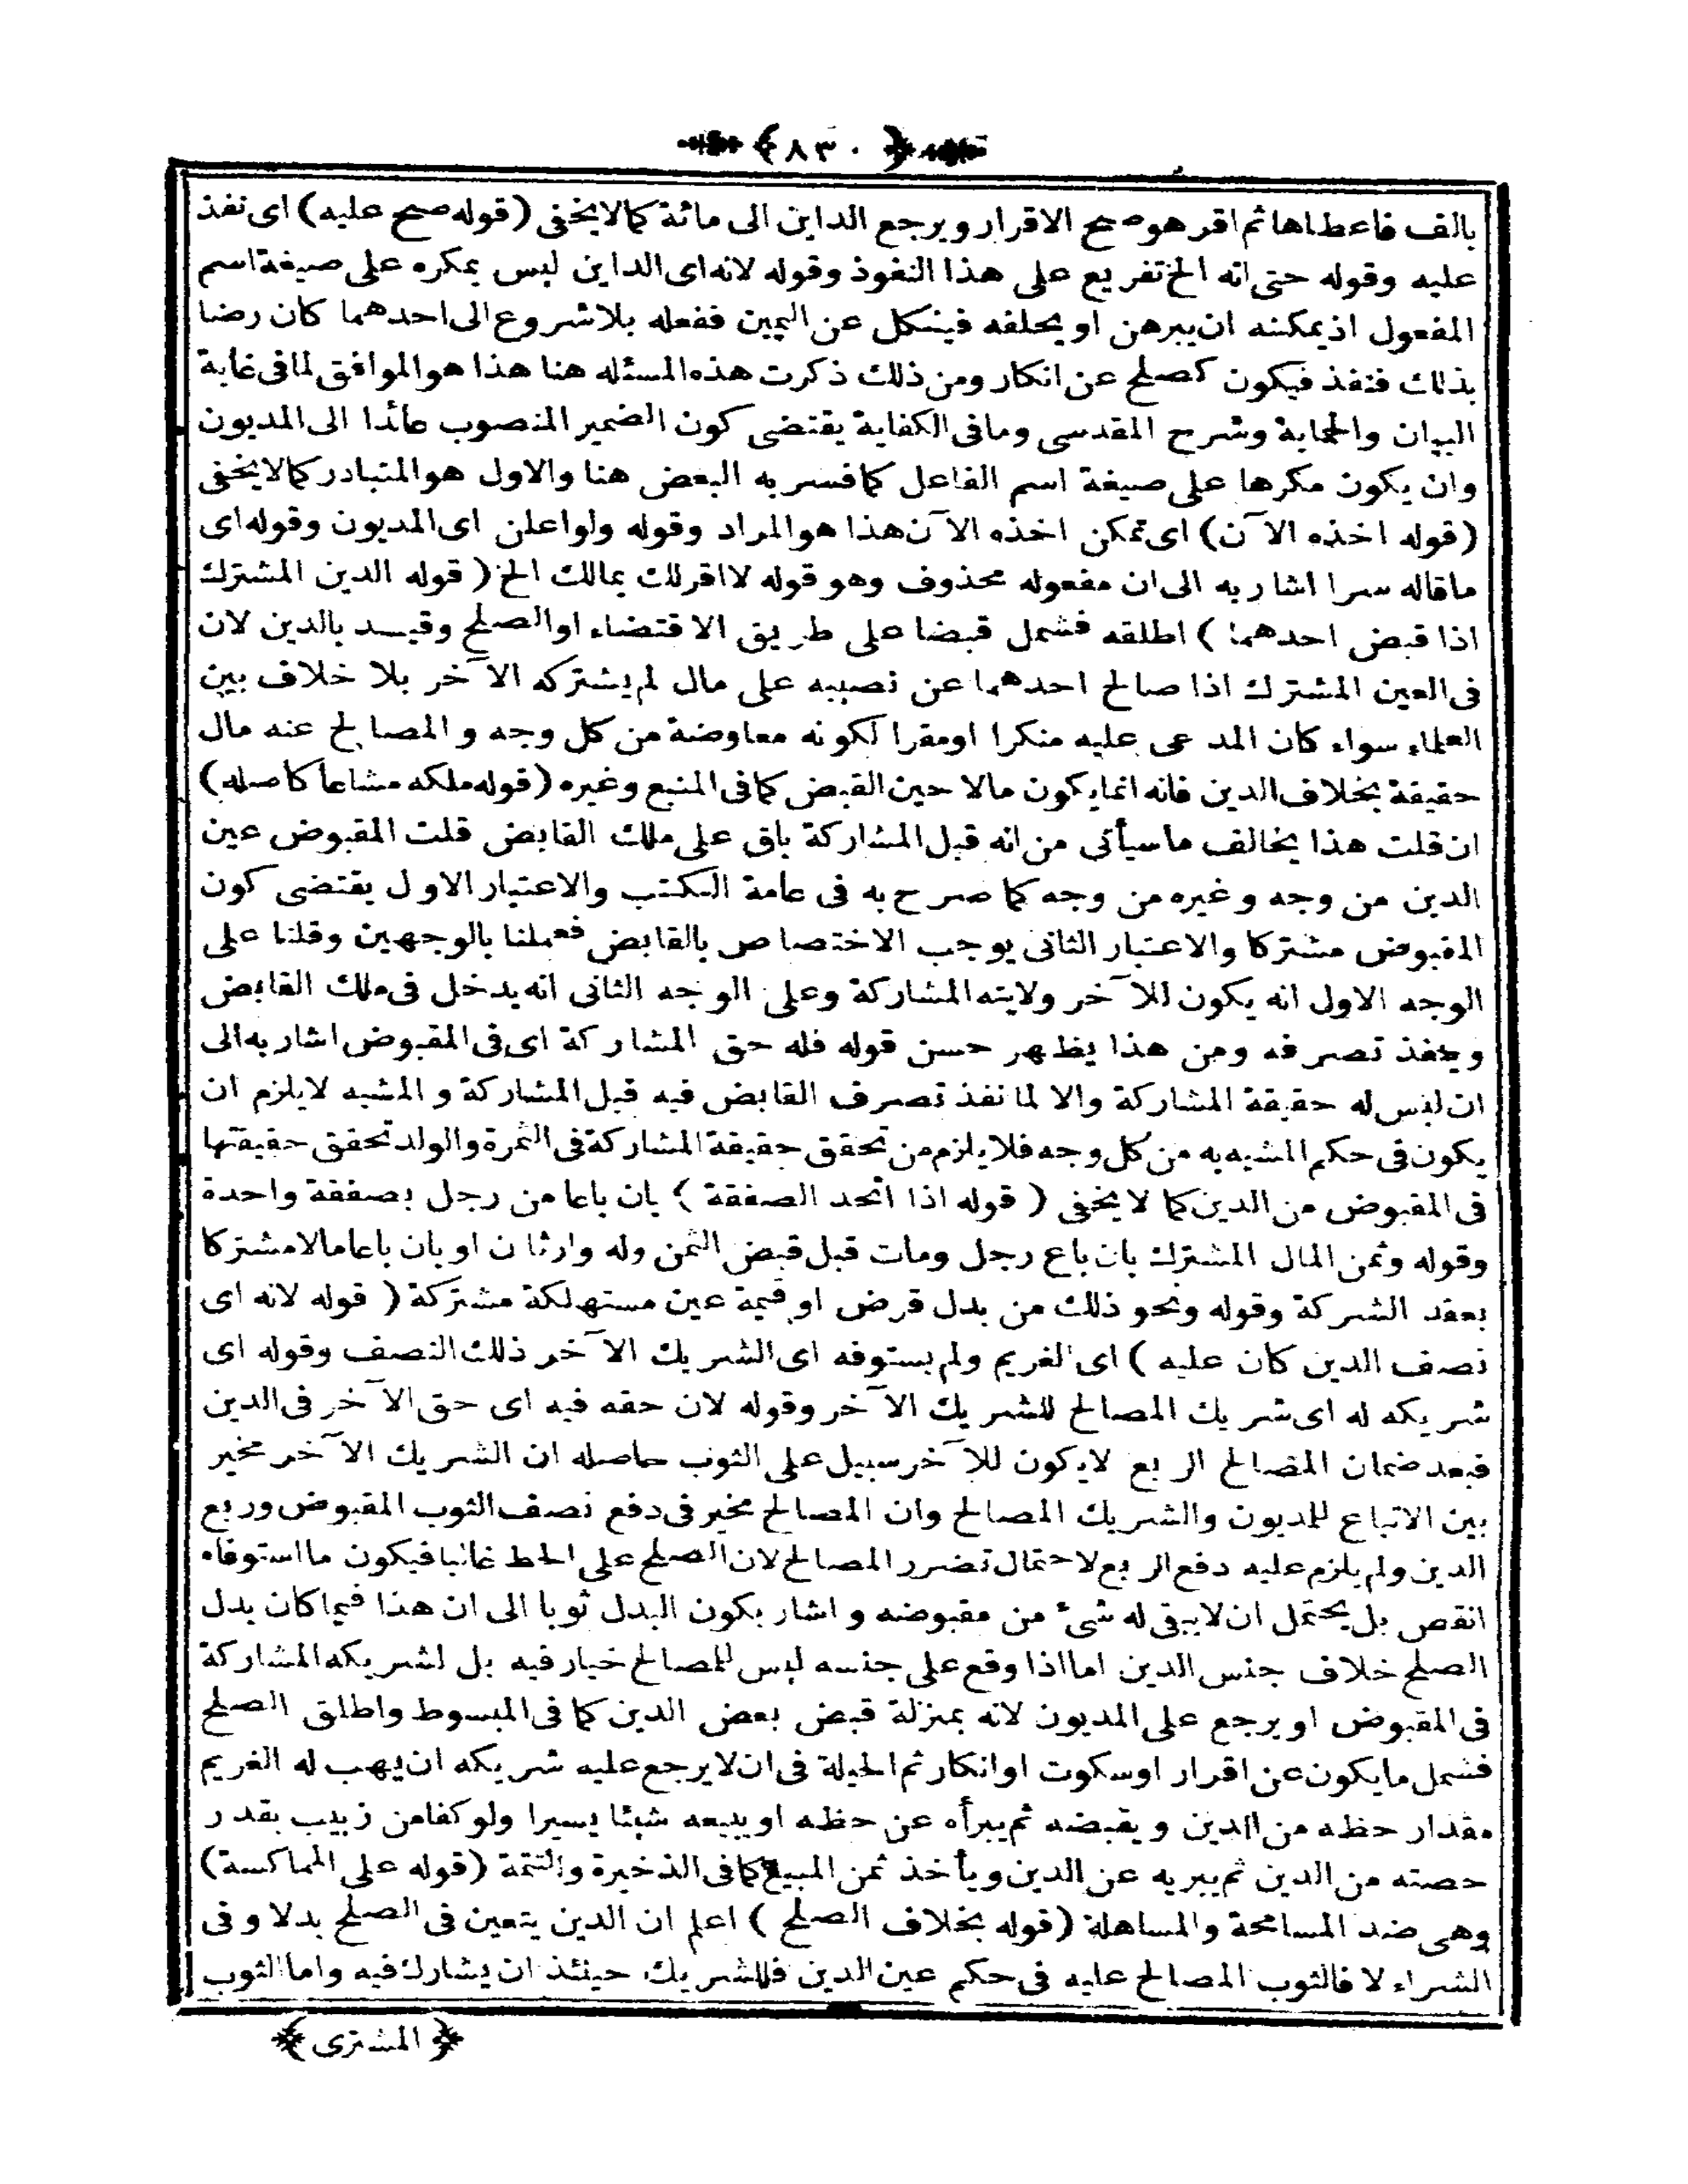 ﴿ ٨٣٠ ﴾
بالف فاعطاها ثم اقر هو صح الاقرار ويرجع الداين الى مائة كما لا يخفى (قوله صح عليه) اى نفذ
عليه وقوله حتى انه الخ تفريع على هذا النفوذ وقوله لانه اى الداين ليس بمكره على صيغة اسم
المفعول اذ يمكنه ان يبرهن او يحلفه فينكل عن اليمين ففعله بلا شروع الى احدهما كان رضا
بذلك فنفذ فيكون كصلح عن انكار ومن ذلك ذكرت هذه المسئله هنا هذا هو الموافق لما فى غاية
البيان والحماية وشرح المقدسى وما فى الكفاية يقتضى كون الضمير المنصوب عائدا الى المديون
وان يكون مكرها على صيغة اسم الفاعل كما فسر به البعض هنا والاول هو المتبادر كما لا يخفى
(قوله اخذه الآن) اى تمكن اخذه الآن هذا هو المراد وقوله ولو اعلن اى المديون وقوله اى
ماقاله سرا اشار به الى ان مفعوله محذوف وهو قوله لا اقر لك بمالك الخ (قوله الدين المشترك
اذا قبض احدهما) اطلقه فشمل قبضا على طريق الاقتضاء او الصلح وقيد بالدين لان
فى العين المشترك اذا صالح احدهما عن نصيبه على مال لم يشتركه الآخر بلا خلاف بين
العلماء سواء كان المدعى عليه منكرا او مقرا لكونه معاوضة من كل وجه والمصالح عنه مال
حقيقة بخلاف الدين فانه انما يكون مالا حين القبض كما فى المنبع وغيره (قوله ملكه مشاعا كاصله)
ان قلت هذا يخالف ما سيأتى من انه قبل المشاركة باق على ملك القابض قلت المقبوض عين
الدين من وجه وغيره من وجه كما صرح به فى عامة الكتب والاعتبار الاول يقتضى كون
المقبوض مشتركا والاعتبار الثانى يوجب الاختصاص بالقابض فعملنا بالوجهين وقلنا على
الوجه الاول انه يكون للآخر ولايته المشاركة وعلى الوجه الثانى انه يدخل فى ملك القابض
وينفذ تصرفه ومن هذا يظهر حسن قوله فله حق المشاركة اى فى المقبوض اشار به الى
ان ليس له حقيقة المشاركة والا لما نفذ تصرف القابض فيه قبل المشاركة والمشبه لا يلزم ان
يكون فى حكم المشبه به من كل وجه فلا يلزم من تحقق حقيقة المشاركة فى الثمرة والولد تحقق حقيقتها
فى المقبوض من الدين كما لا يخفى (قوله اذا اتحد الصفقة) بان باعا من رجل بصفقة واحدة
وقوله وثمن المال المشترك بان باع رجل ومات قبل قبض الثمن وله وارثان او بان باعا مالا مشتركا
بعقد الشركة وقوله ونحو ذلك من بدل قرض او قيمة عين مستهلكة مشتركة (قوله لانه اى
نصف الدين كان عليه) اى الغريم ولم يستوفه اى الشريك الآخر ذلك النصف وقوله اى
شريكه له اى شريك المصالح للشريك الآخر وقوله لان حقه فيه اى حق الآخر فى الدين
فبعد ضمان المصالح الربع لا يكون للآخر سبيل على الثوب حاصله ان الشريك الآخر مخير
بين الاتباع للمديون والشريك المصالح وان المصالح مخير فى دفع نصف الثوب المقبوض وربع
الدين ولم يلزم عليه دفع الربع لاحتمال تضرر المصالح لان الصلح على الحط غالبا فيكون ما استوفاه
انقص بل يحتمل ان لا يبقى له شئ من مقبوضه واشار بكون البدل ثوبا الى ان هذا فيما كان بدل
الصلح خلاف جنس الدين اما اذا وقع على جنسه ليس للمصالح خيار فيه بل لشريكه المشاركة
فى المقبوض او يرجع على المديون لانه بمنزلة قبض بعض الدين كما فى المبسوط واطلق الصلح
فشمل ما يكون عن اقرار او سكوت او انكار ثم الحيلة فى ان لا يرجع عليه شريكه ان يهب له الغريم
مقدار حظه من الدين ويقبضه ثم يبرأه عن حظه او يبيعه شيئا يسيرا ولو كفا من زبيب بقدر
حصته من الدين ثم يبريه عن الدين ويأخذ ثمن المبيع كما فى الذخيرة والتتمة (قوله على المماكسة)
وهى ضد المسامحة والمساهلة (قوله بخلاف الصلح) اعلم ان الدين يتعين فى الصلح بدلا وفى
الشراء لا فالثوب المصالح عليه فى حكم عين الدين فللشريك حينئذ ان يشارك فيه واما الثوب
﴿ المشترى ﴾